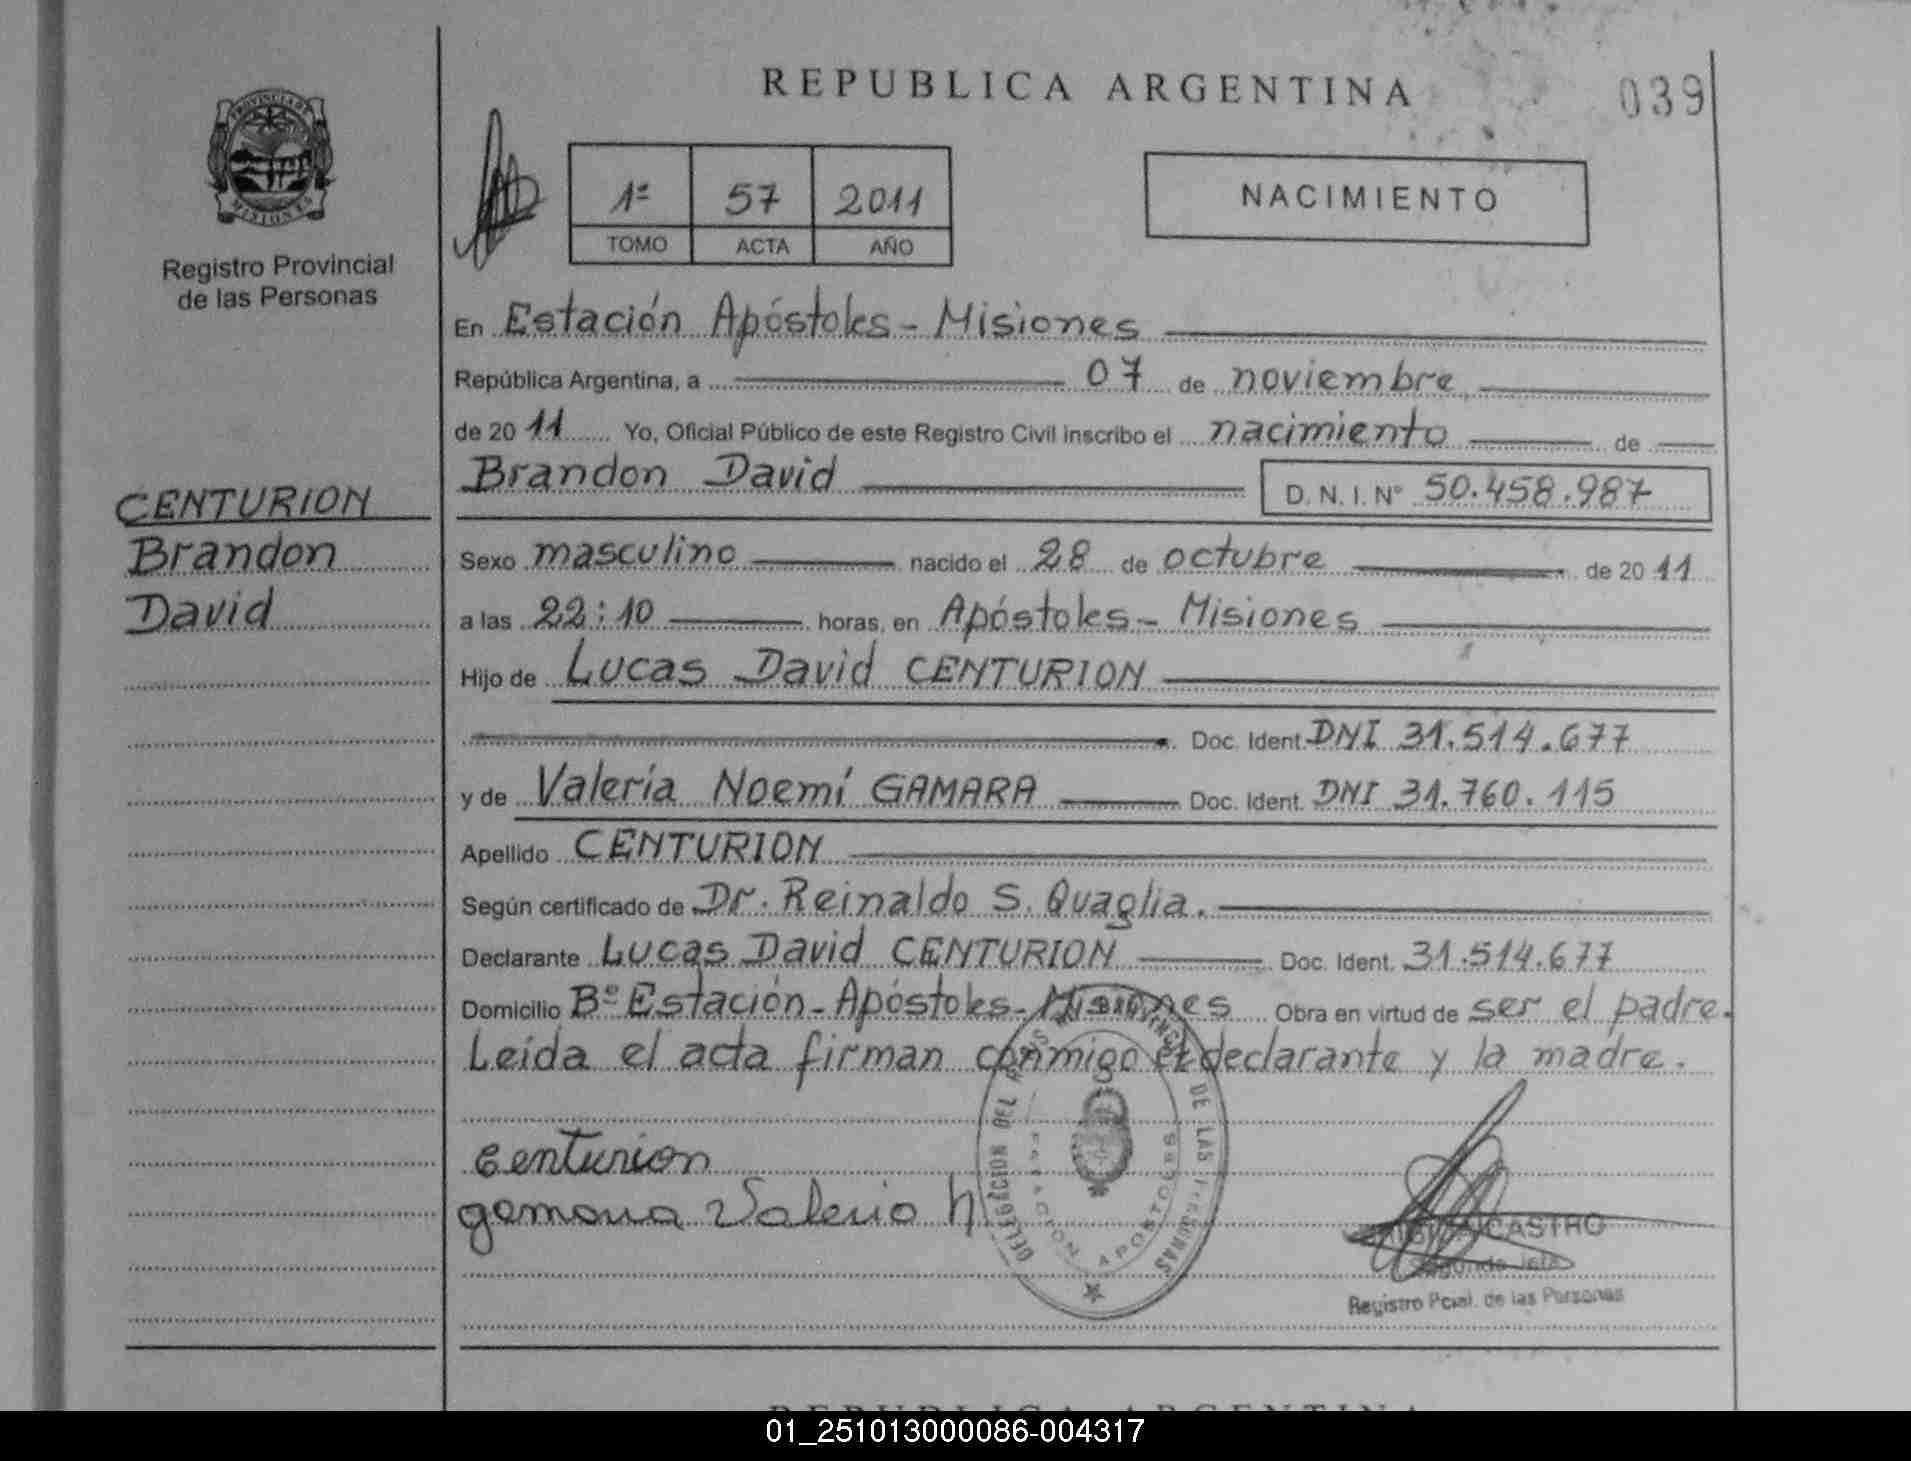 REPUBLICA ARGENTINA
039
PROVINCIA DE
MISIONES
Registro Provincial
de las Personas
1º 57 2011
TOMO ACTA AÑO
NACIMIENTO
En Estación Apóstoles - Misiones
República Argentina, a 07 de noviembre
de 2011 Yo, Oficial Público de este Registro Civil inscribo el nacimiento de
Brandon David D.N.I. Nº 50.458.987
CENTURION
Brandon
David
Sexo masculino nacido el 28 de octubre de 2011
a las 22:10 horas, en Apóstoles - Misiones
Hijo de Lucas David CENTURION
Doc. Ident. DNI 31.514.677
y de Valeria Noemí GAMARA Doc. Ident. DNI 31.760.115
Apellido CENTURION
Según certificado de Dr. Reinaldo S. Quaglia.
Declarante Lucas David CENTURION Doc. Ident. 31.514.677
Domicilio Bº Estación - Apóstoles - Misiones Obra en virtud de ser el padre.
Leída el acta firman conmigo el declarante y la madre.
centurion
gamarra Valeria N
DELEGACION DEL DE LAS PERSONAS
ESTACION APOSTOLES
CASTRO
Registro Pcial. de las Personas
REPUBLICA ARGENTINA
01_251013000086-004317